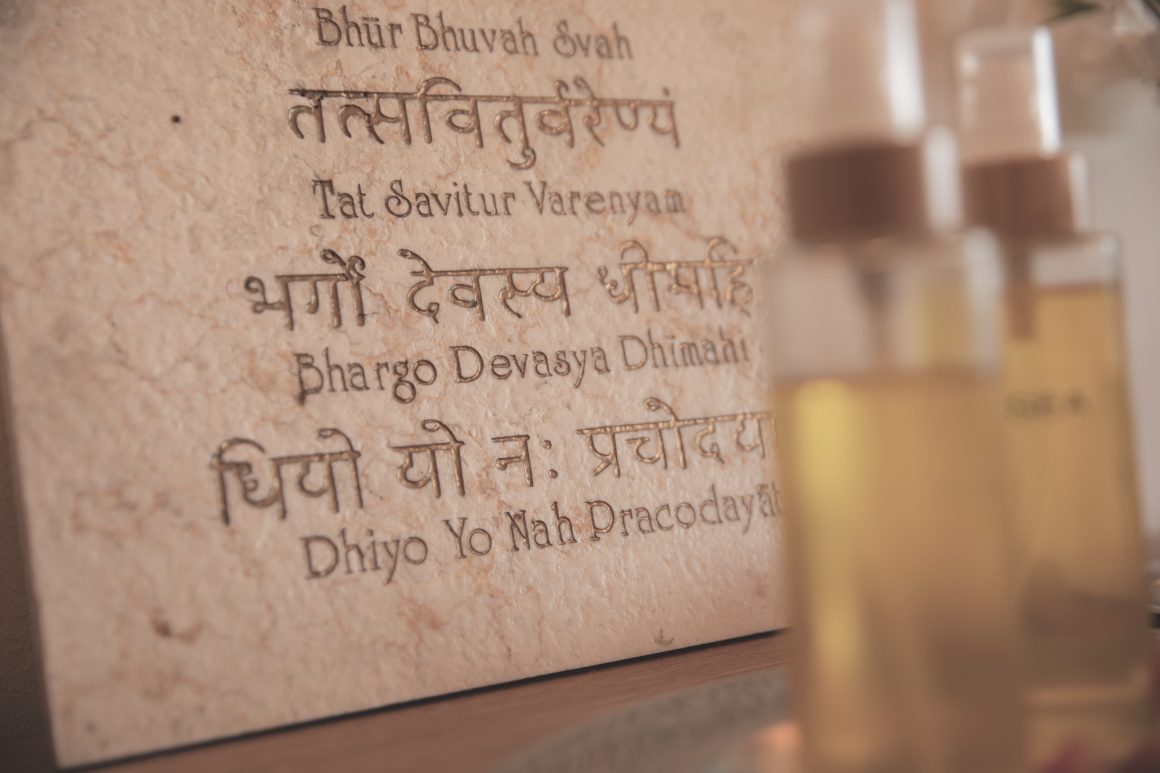 Bhūr Bhuvah Svah
तत्सवितुर्वरेण्यं
Tat Savitur Varenyam
भर्गो देवस्य धीमहि
Bhargo Devasya Dhīmahi
धियो यो नः प्रचोदया
Dhiyo Yo Nah Pracodayāt